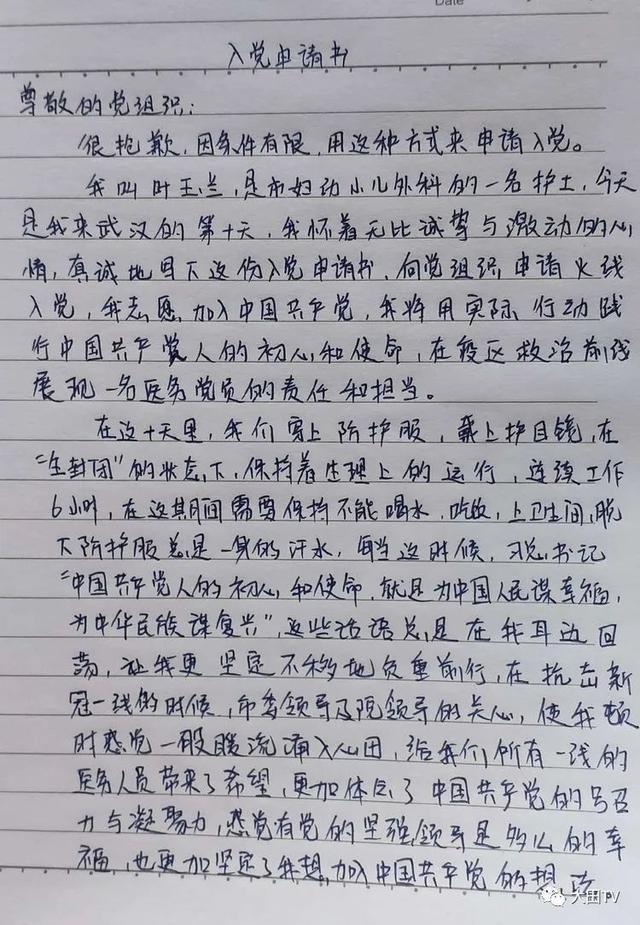 Date
入党申请书
尊敬的党组织：
很抱歉，因条件有限，用这种方式来申请入党。
我叫叶玉兰，是市妇幼小儿外科的一名护士，今天
是我来武汉的第十天，我怀着无比诚挚与激动的心
情，真诚地写下这份入党申请书，向党组织申请火线
入党，我志愿加入中国共产党，我将用实际行动践
行中国共产党人的初心和使命，在疫区救治前线
展现一名医务党员的责任和担当。
在这十天里，我们穿上防护服，戴上护目镜，在
“全封闭”的状态下，保持着生理上的运行，连续工作
6小时，在这期间需要保持不能喝水、吃饭、上卫生间，脱
下防护服总是一身的汗水，每当这时候，习总书记
“中国共产党人的初心和使命，就是为中国人民谋幸福，
为中华民族谋复兴”，这些话语总是在我耳边回
荡，让我更坚定不移地负重前行，在抗击新
冠一线的时候，市委领导及院领导的关心，使我顿
时感觉一股暖流涌入心田，给我们所有一线的
医务人员带来了希望，更加体会了中国共产党的号召
力与凝聚力，感觉有党的坚强领导是多么的幸
福，也更加坚定了我想加入中国共产党的想法。
大田TV